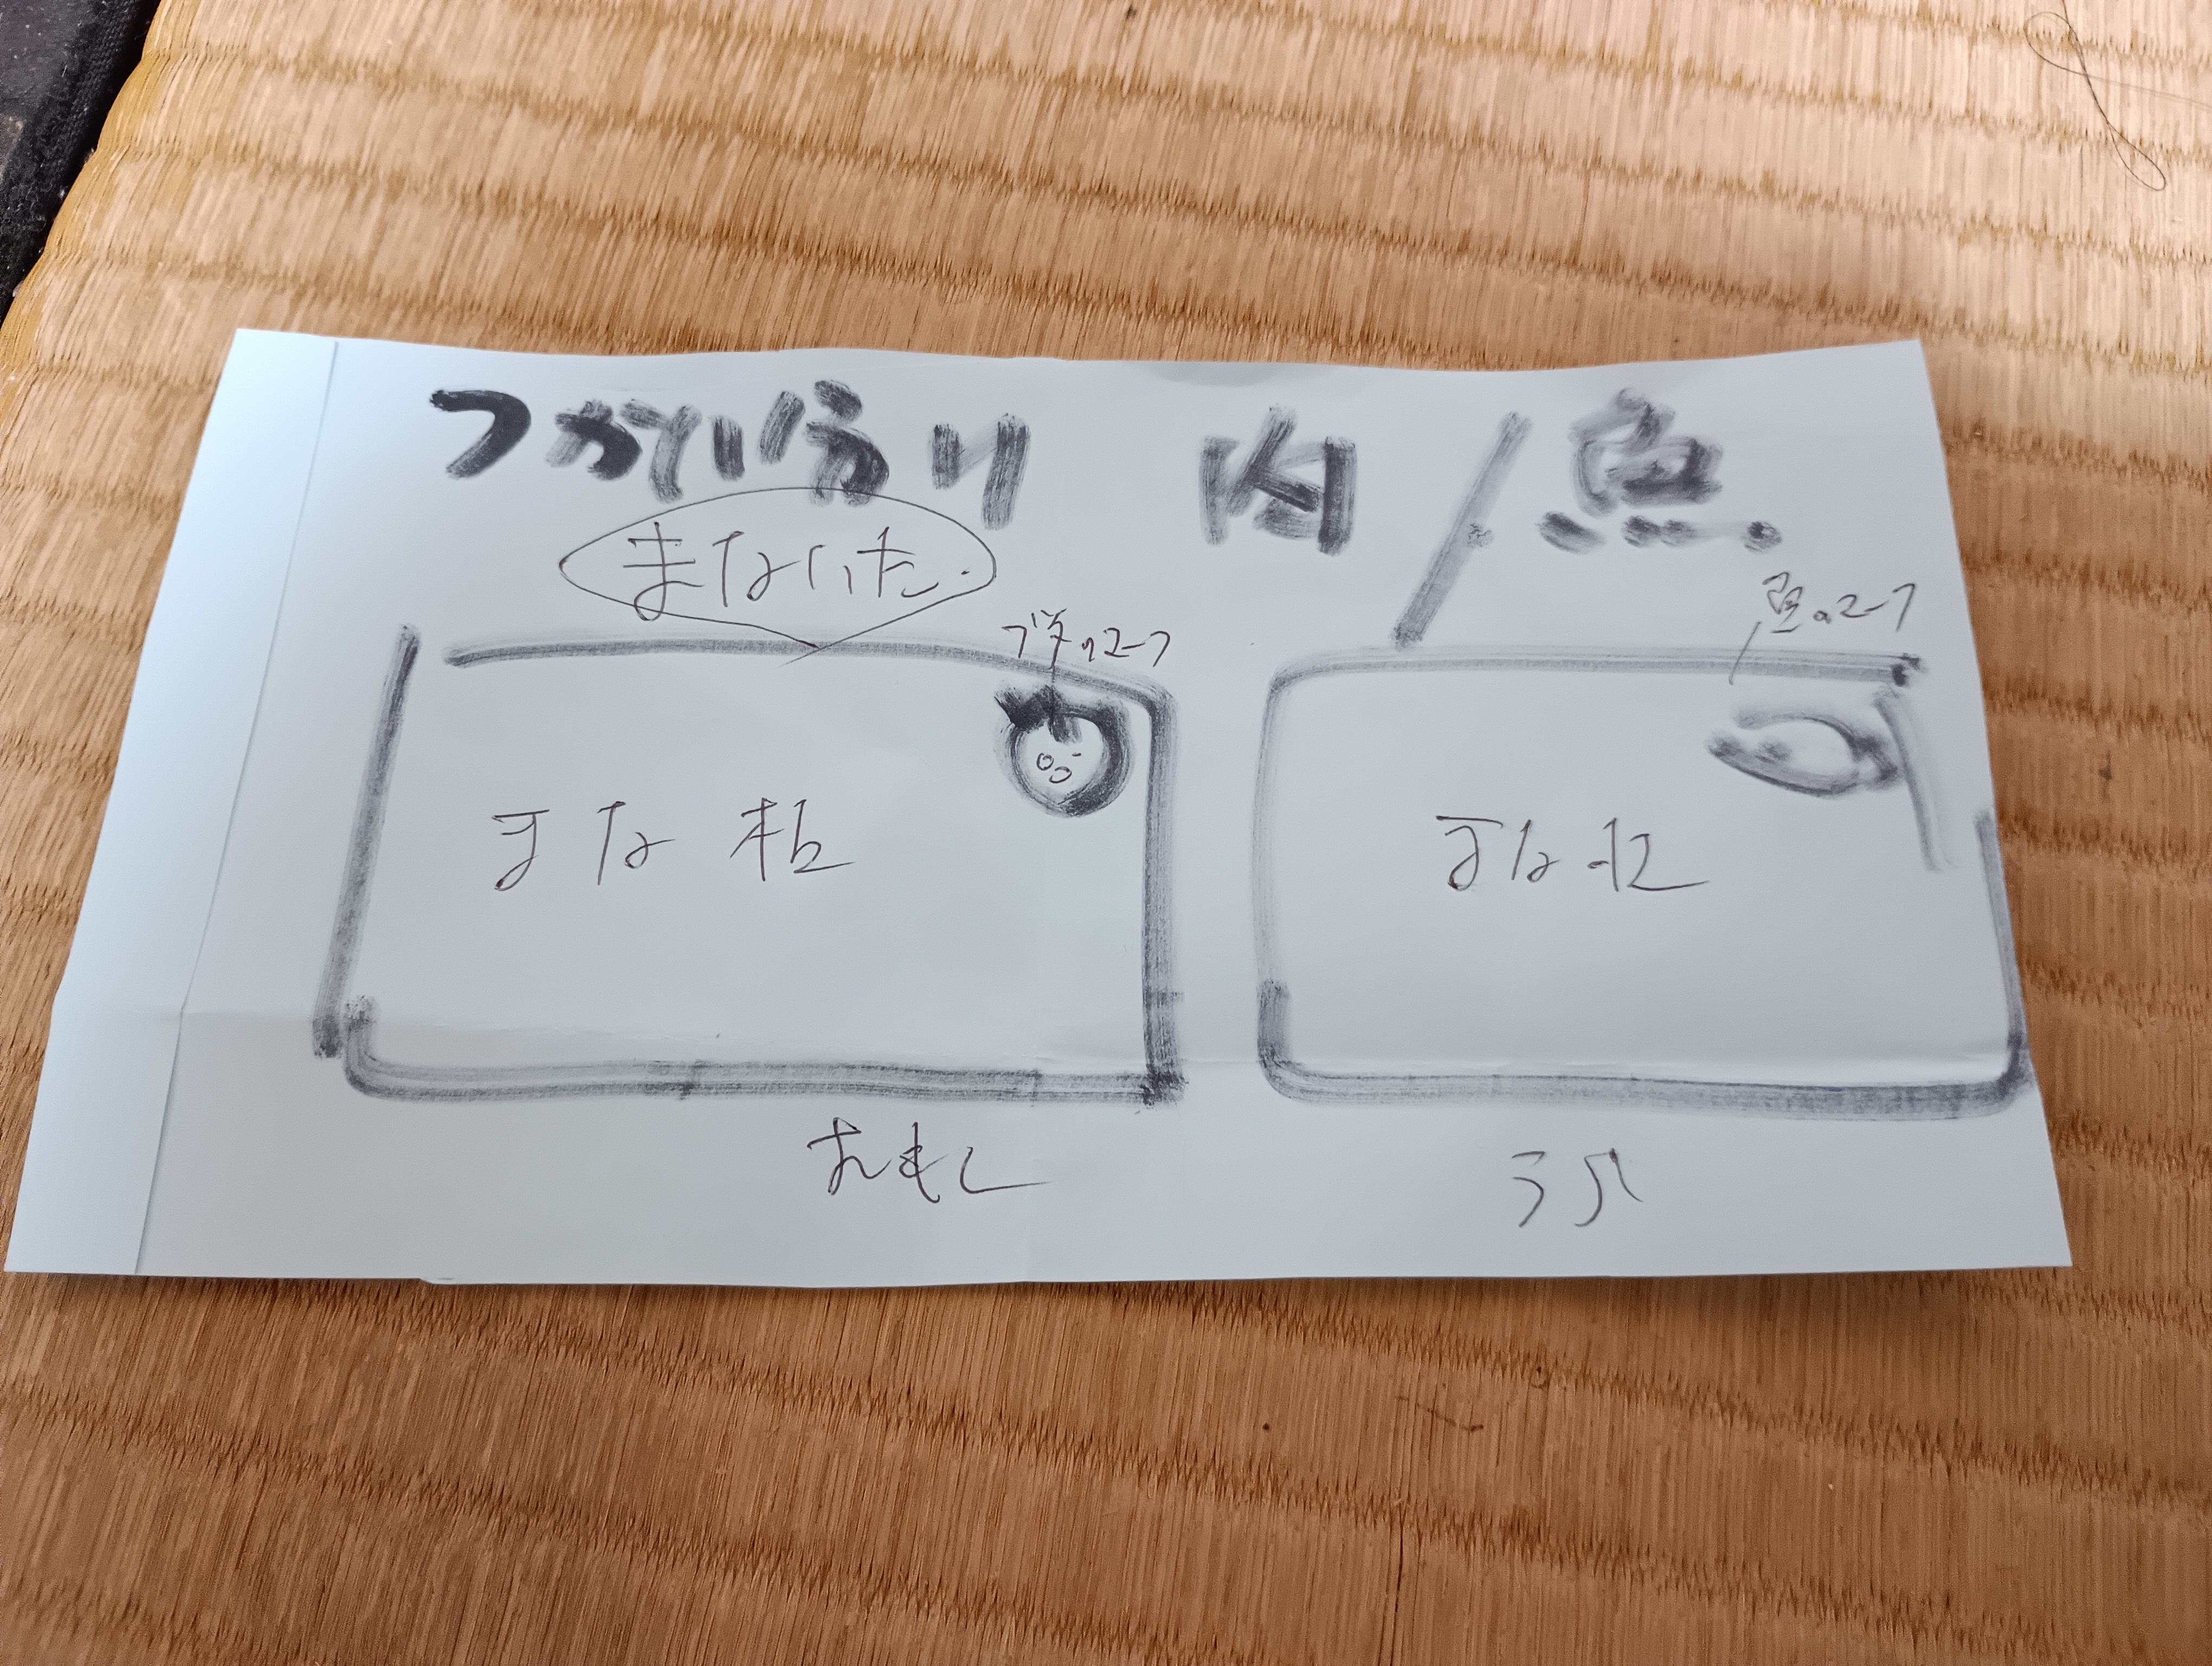 つかい分け 肉/魚
まないた
豚のマーク
魚のマーク
まな板
まな板
おもて
うら